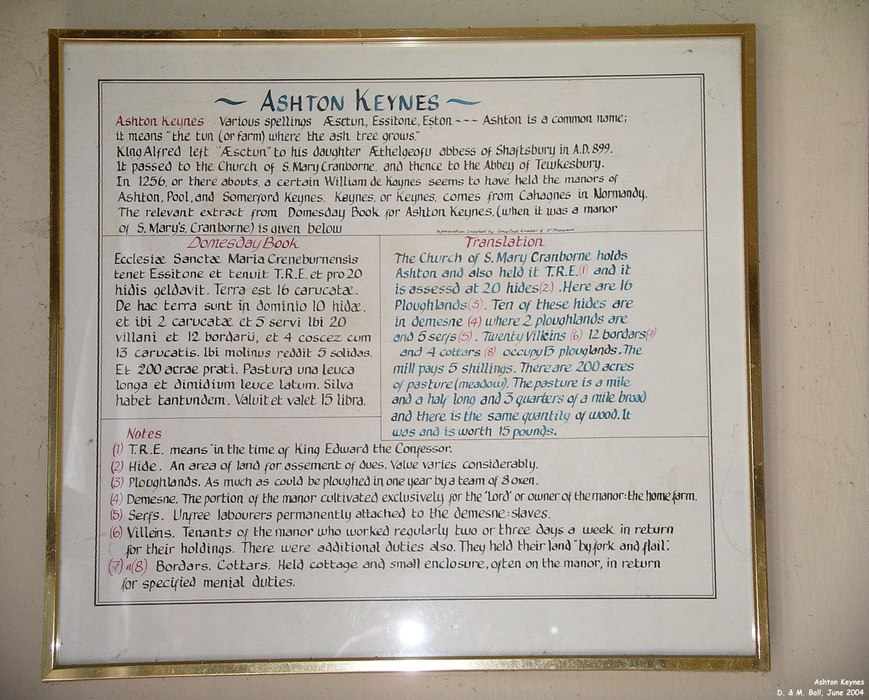 ~ ASHTON KEYNES ~
Ashton Keynes Various spellings Æsctun, Essitone, Eston ~~~ Ashton is a common name;
it means "the tun (or farm) where the ash tree grows."
King Alfred left "Æsctun" to his daughter Æthelgeofu abbess of Shaftsbury in A.D. 899.
It passed to the Church of S. Mary Cranborne, and thence to the Abbey of Tewkesbury.
In 1256, or there abouts, a certain William de Kaynes seems to have held the manors of
Ashton, Pool, and Somerford Keynes. Kaynes, or Keynes, comes from Cahagnes in Normandy.
The relevant extract from Domesday Book for Ashton Keynes, (when it was a manor
of S. Mary's, Cranborne) is given below
Information Supplied by
Domesday Book
Ecclesiæ Sanctæ Maria Creneburnensis
tenet Essitone et tenuit T.R.E. et pro 20
hidis geldavit. Terra est 16 carucatæ.
De hac terra sunt in dominio 10 hidæ.
et ibi 2 carucatæ et 5 servi Ibi 20
villani et 12 bordarü, et 4 coscez cum
13 carucatis. Ibi molinus reddit 5 solidas.
Et 200 acrae prati. Pastura una leuca
longa et dimidium leuce latum. Silva
habet tantundem. Valuit et valet 15 libra.
Translation
The Church of S. Mary Cranborne holds
Ashton and also held it T.R.E.(1) and it
is assessd at 20 hides(2). Here are 16
Ploughlands(3). Ten of these hides are
in demesne (4) where 2 ploughlands are
and 5 serfs(5). Twenty Villeins (6) 12 bordars(7)
and 4 cottars (8) occupy 13 plouglands. The
mill pays 5 shillings. There are 200 acres
of pasture (meadow). The pasture is a mile
and a half long and 3 quarters of a mile broad
and there is the same quantity of wood. It
was and is worth 15 pounds.
Notes
(1) T.R.E. means "in the time of King Edward the Confessor.
(2) Hide. An area of land for assement of dues. Value varies considerably.
(3) Ploughlands. As much as could be ploughed in one year by a team of 8 oxen.
(4) Demesne. The portion of the manor cultivated exclusively for the "Lord" or owner of the manor: the home farm.
(5) Serfs. Unfree labourers permanently attached to the demesne: slaves.
(6) Villeins. Tenants of the manor who worked regularly two or three days a week in return
for their holdings. There were additional duties also. They held their land "by fork and flail".
(7) & (8) Bordars. Cottars. Held cottage and small enclosure, often on the manor, in return
for specified menial duties.
Ashton Keynes
D. & M. Ball, June 2004